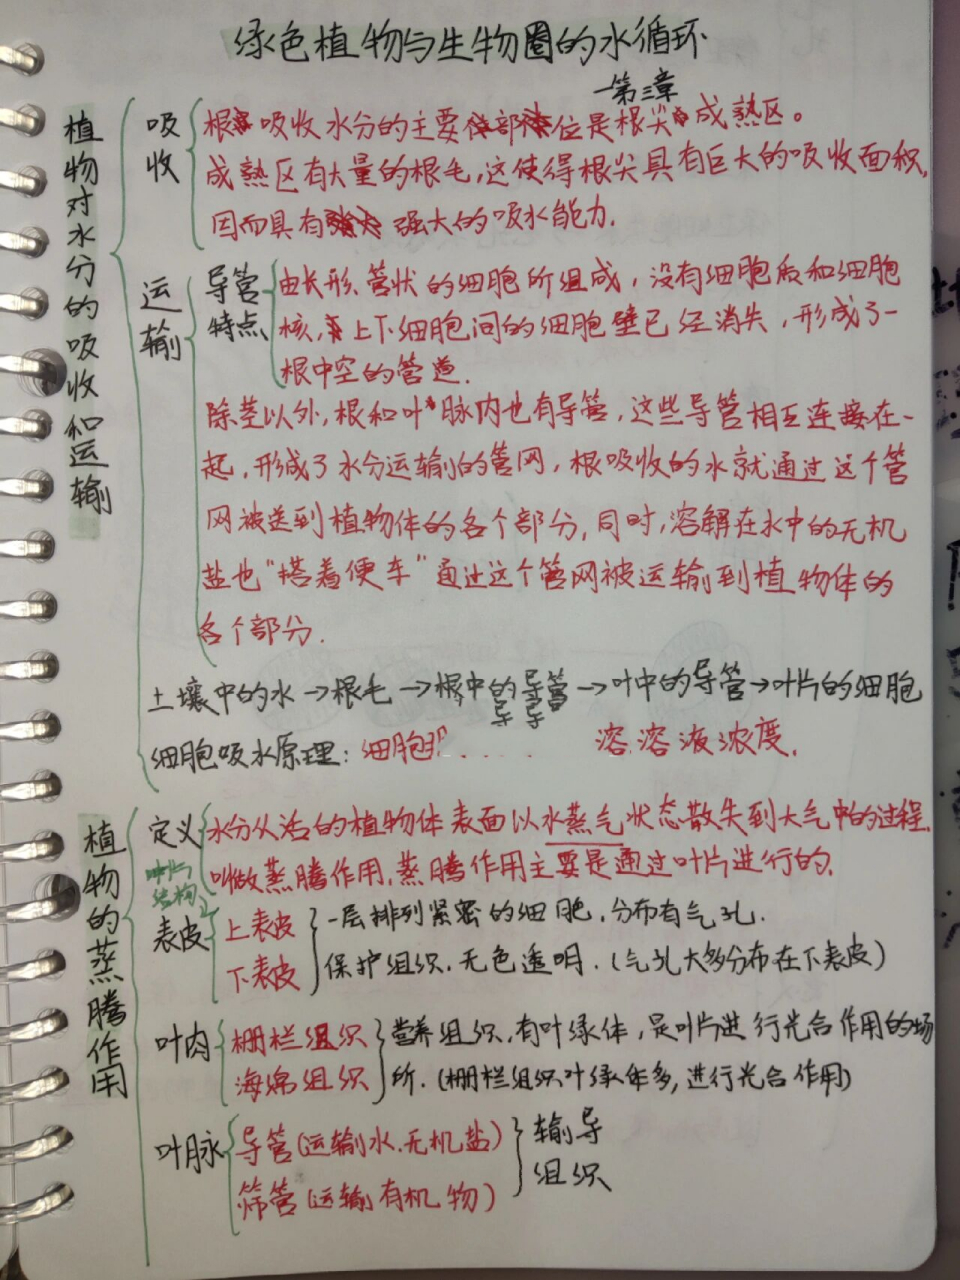 绿色植物与生物圈的水循环
—第三章
植物对水分的吸收和运输
吸收
根吸收水分的主要部位是根尖成熟区。
成熟区有大量的根毛,这使得根尖具有巨大的吸收面积,
因而具有强大的吸水能力.
运输
导管特点
由长形、管状的细胞所组成,没有细胞质和细胞
核,上下细胞间的细胞壁已经消失,形成了一
根中空的管道.
除茎以外,根和叶脉内也有导管,这些导管相互连接在一
起,形成了水分运输的管网,根吸收的水就通过这个管
网被送到植物体的各个部分,同时,溶解在水中的无机
盐也“搭着便车”通过这个管网被运输到植物体的
各个部分.
土壤中的水→根毛→根中的导管→叶中的导管→叶片的细胞
导 导
细胞吸水原理:细胞 ..... 溶溶液浓度.
植物的蒸腾作用
定义
水分从活的植物体表面以水蒸气状态散失到大气中的过程.
叫做蒸腾作用,蒸腾作用主要是通过叶片进行的.
叶片结构
表皮
上表皮
下表皮
一层排列紧密的细胞,分布有气孔.
保护组织.无色透明.(气孔大多分布在下表皮)
叶肉
栅栏组织
海绵组织
营养组织,有叶绿体,是叶片进行光合作用的场
所.(栅栏组织叶绿体多,进行光合作用)
叶脉
导管(运输水.无机盐)
筛管(运输有机物)
输导
组织